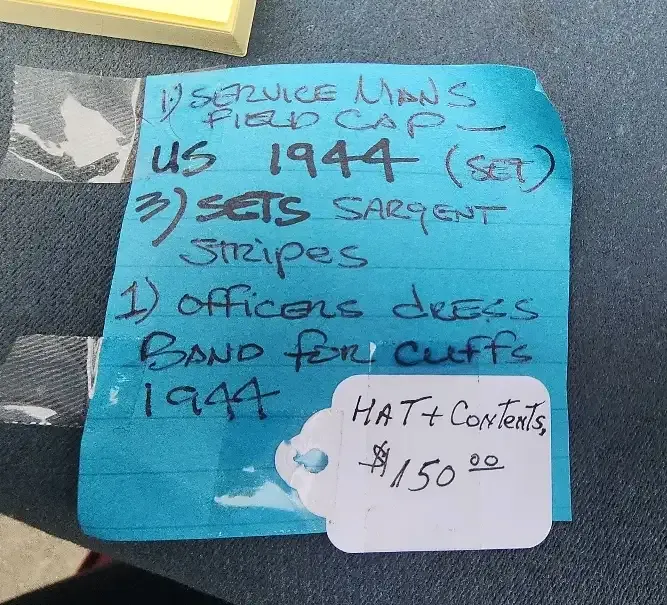 1) SERVICE MANS
FIELD CAP —
US 1944 (SET)
3) SETS SARGENT
STRIPES
1) OFFICERS DRESS
BAND FOR CUFFS
1944
HAT + CONTENTS,
$150 00